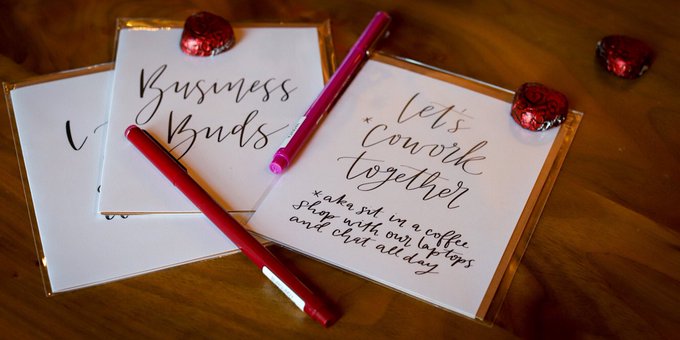 Business
Buds
Let's
*cowork
together
*aka sit in a coffee
shop with our laptops
and chat all day